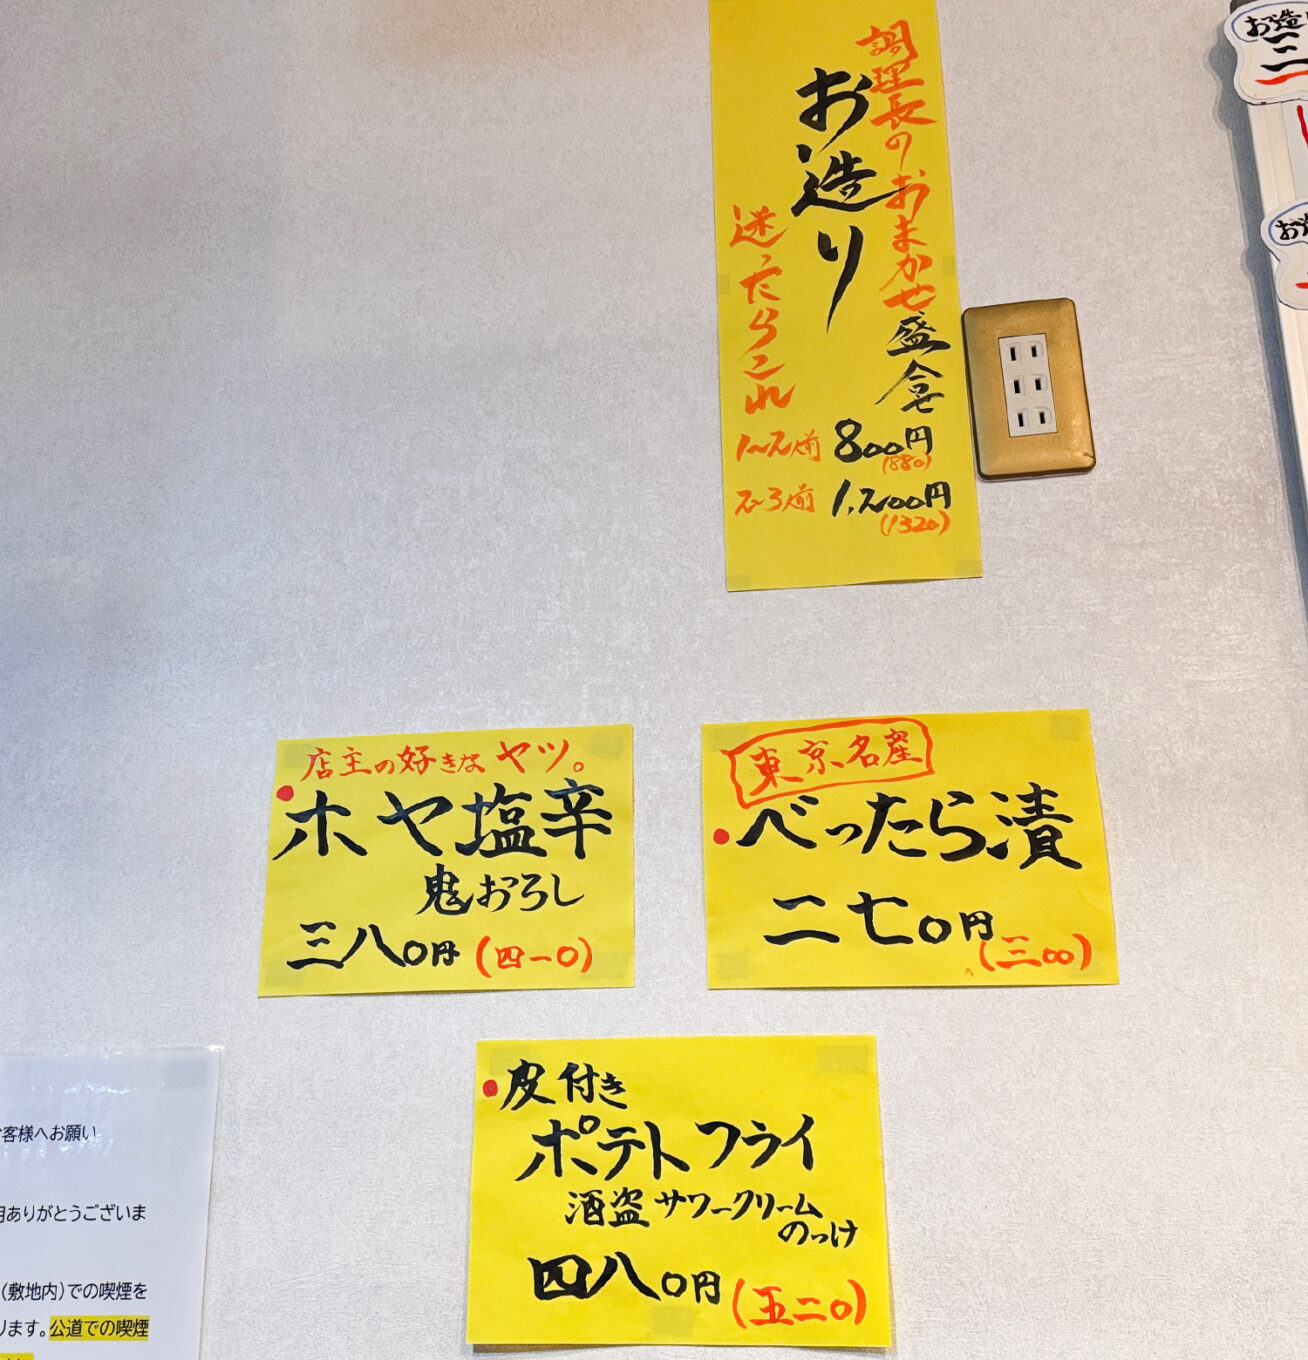 調理長のおまかせ盛合せ
お造り
迷ったらこれ
1〜2人前 800円
(880)
2〜3人前 1,200円
(1320)
お造り
店主の好きなヤツ。
ホヤ塩辛
鬼おろし
三八〇円(四一〇)
東京名産
べったら漬
二七〇円
(三〇〇)
皮付き
ポテトフライ
酒盗サワークリーム
のっけ
四八〇円(五二〇)
お客様へお願い
ありがとうございま
(敷地内)での喫煙を
ります。公道での喫煙